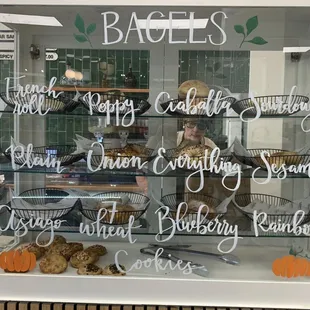 BAGELS
French roll Poppy Ciabatta Sourdou
Plain Onion Everything Sesam
Asiago wheat Blueberry Rainbo
Cookies